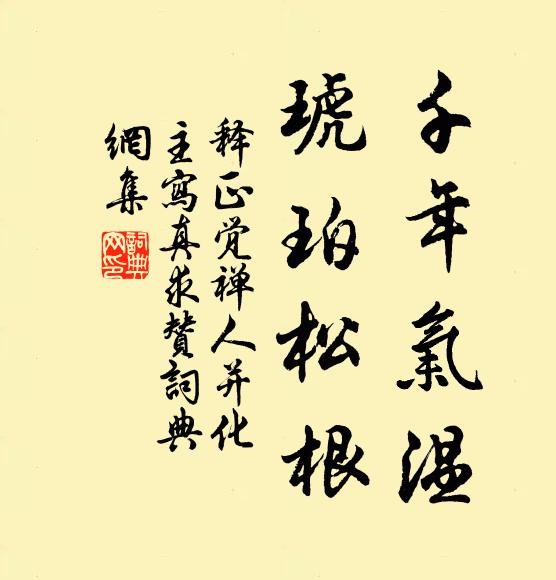 千年氣温
琥珀松根
释正觉禅人并化
主寫真求贊詞典
網集
詞典
网印